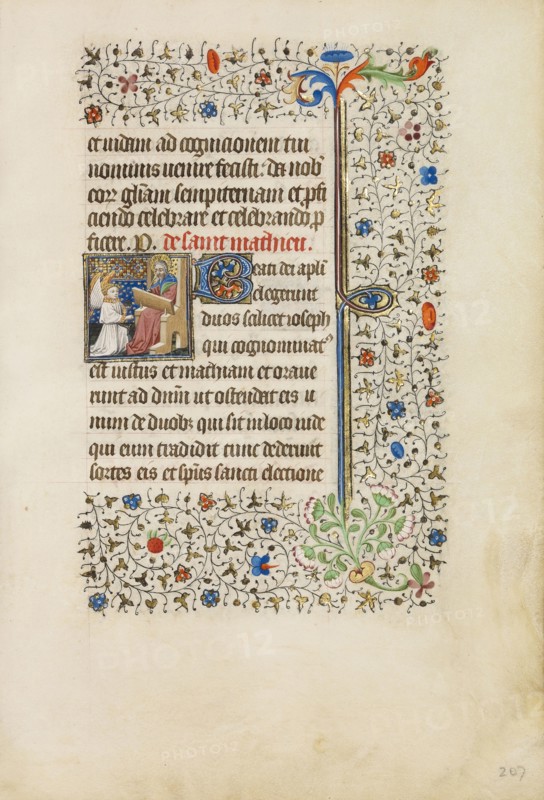 et vidam ad cognicionem tui
nominis uenire fecisti. da nob
eor gl̃iam sempiternam et ꝓfi
ciendo celebrare et celebrando ꝓ
ficere. P. de saint mathieu.
Beati dei apl̃i
elegerunt
duos scilicet ioseph
qui cognominatꝰ
est iustus et mathiam et oraue
runt ad dñm ut ostendat eis u
num de duobꝫ qui sit in loco iude
qui eum tradidit tunc dederunt
sortes eis et sp̃us sancti electione
207
PHOTO12